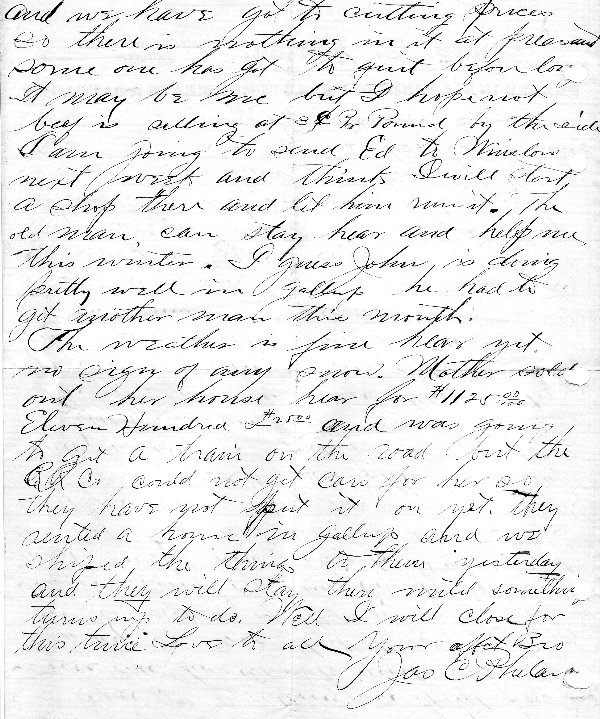 and we have got to cutting prices
so there is nothing in it at preasant
some one has got to quit befor long
It may be me but I hope not
beef is selling at 3¢ Pr Pound by the side
I am going to send Ed to Winslow
next week and think I will start
a shop there and let him run it. The
old man can stay hear and help me
this winter. I guess John is doing
pretty well in gallup he had to
get another man this month.
The weather is fine hear yet
no sign of any snow. Mother sold
out her house hear for $1125.00/100
Eleven Hundred & $25.00 and was going
to get a train on the road but the
R R Co could not get cars for her so
they have not put it on yet. they
rented a house in gallup and we
shiped the things to them yesterday
and they will stay there until something
turns up to do. Well I will close for
this time Love to all Your affct Bro
Jas C Phelan